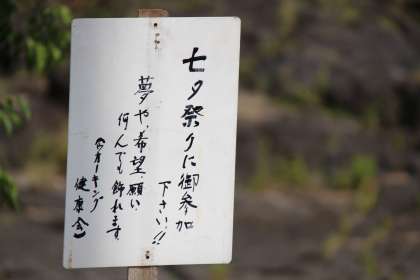 七夕祭りに御参加
下さい!!
夢や、希望、願い
何んでも飾れます。
(ウオーキング
健康会)